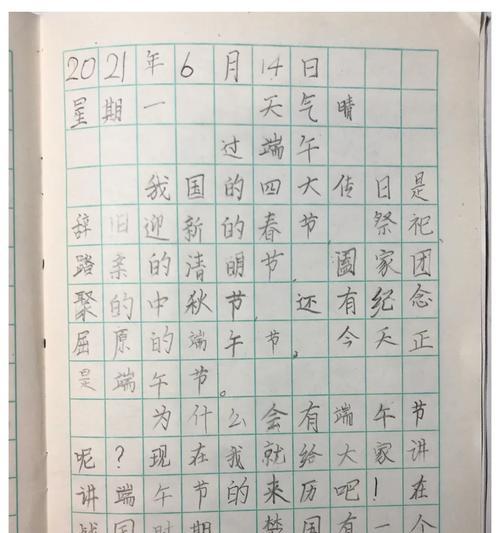 2021年6月14日
星期一 天气晴
过端午
我国的四大传日是
辞旧迎新的春节 祭祀
踏亲的清明节 阖家团
聚的中秋节 还有纪念
屈原的端午节。今天正
是端午节。
为什么会有端午节
呢?现在我就给大家讲
讲端午节的来历吧!在
战国时期 楚国有一个